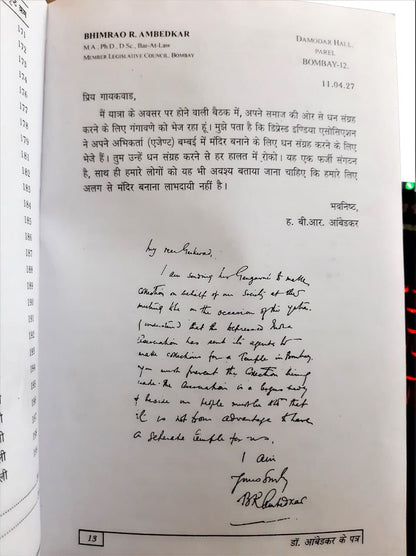 BHIMRAO R. AMBEDKAR
M.A., Ph.D., D.Sc., Bar-At-Law
MEMBER LEGISLATIVE COUNCIL, BOMBAY
DAMODAR HALL,
PAREL
BOMBAY-12.
11.04.27
प्रिय गायकवाड,
में यात्रा के अवसर पर होने वाली बैठक में, अपने समाज की ओर से धन संग्रह
करने के लिए गंगावणे को भेज रहा हूं। मुझे पता है कि डिप्रेस्ड इण्डिया एसोनिएशन
ने अपने अभिकर्ता (एजेण्ट) बम्बई में मंदिर बनाने के लिए धन संग्रह करने के लिए
भेजे हैं। तुम उन्हें धन संग्रह करने से हर हालत में रोको। यह एक फर्जी संगठन
है, साथ ही हमारे लोगों को यह भी अवश्य बताया जाना चाहिए कि हमारे लिए
अलग से मंदिर बनाना लाभदायी नहीं है।
भवनिष्ठ,
ह. बी.आर. आंबेडकर
I am sending Mr Gangavni to make
collection on behalf of our Society at the
meeting on the occasion of the
I understand that the Depressed India
Association has sent its agents to
make collections for a Temple in Bombay.
You must prevent the collection being
made. The Association is a bogus body
& beside our people must be told that
it is not to our advantage to have
a separate temple for us.
I am
BR Ambedkar
13
डॉ. आंबेडकर के पत्र
171
174
176
179
180
181
183
185
187
188
190
191
193
193
195